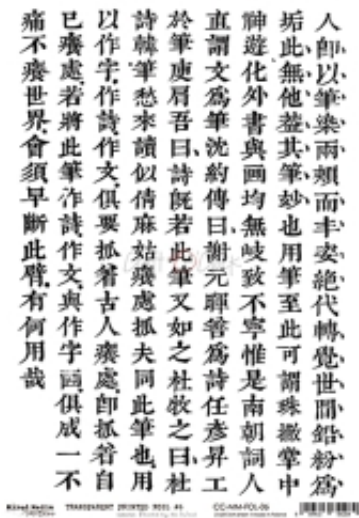 人卽以筆染兩頰而丰姿絕代轉覺世間鉛粉為
垢此無他蓋其筆妙也用筆至此可謂珠撒掌中
神遊化外書與画均無岐致不寧惟是南朝詞人
直謂文為筆沈約傳曰謝元暉善為詩任彥昇工
於筆庾肩吾曰詩旣若此筆又如之杜牧之曰杜
詩韓筆愁來讀似倩麻姑癢處抓夫同此筆也用
以作字作詩作文俱要抓着古人癢處卽抓着自
已癢處若將此筆作詩作文與作字畫俱成一不
痛不癢世界會須早斷此臂有何用哉
Mixed Media TRANSPARENT PRINTED FOIL CC-MM-FOL-06